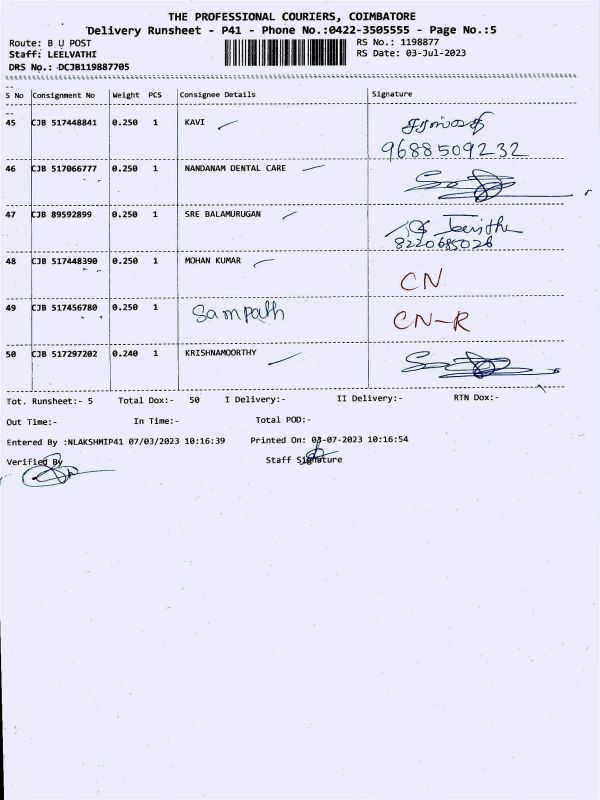 THE PROFESSIONAL COURIERS, COIMBATORE
Delivery Runsheet - P41 - Phone No.:0422-3505555 - Page No.:5
Route: B U POST RS No.: 1198877
Staff: LEELVATHI RS Date: 03-Jul-2023
DRS No.: DCJB119887705
S No Consignment No Weight PCS Consignee Details Signature
45 CJB 517448841 0.250 1 KAVI சரஸ்வதி
9688509232
46 CJB 517066777 0.250 1 NANDANAM DENTAL CARE
47 CJB 89592899 0.250 1 SRE BALAMURUGAN
8220685026
48 CJB 517448390 0.250 1 MOHAN KUMAR CN
49 CJB 517456780 0.250 1 Sampath CN-R
50 CJB 517297202 0.240 1 KRISHNAMOORTHY
Tot. Runsheet:- 5 Total Dox:- 50 I Delivery:- II Delivery:- RTN Dox:-
Out Time:- In Time:- Total POD:-
Entered By :NLAKSHMIP41 07/03/2023 10:16:39 Printed On: 03-07-2023 10:16:54
Verified By Staff Signature